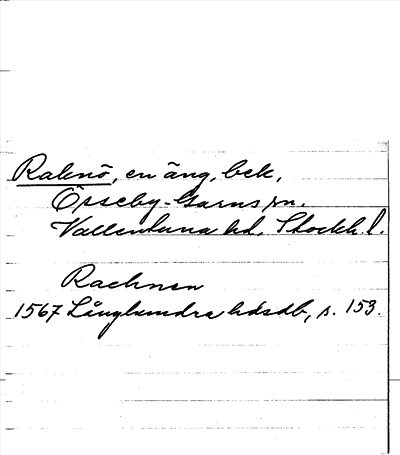 Raknö, en äng, bek.
Össeby-Garns sn.
Vallentuna hd. Stockh. l.
Rachnen
1567 Långhundra hdsdb, s. 153.